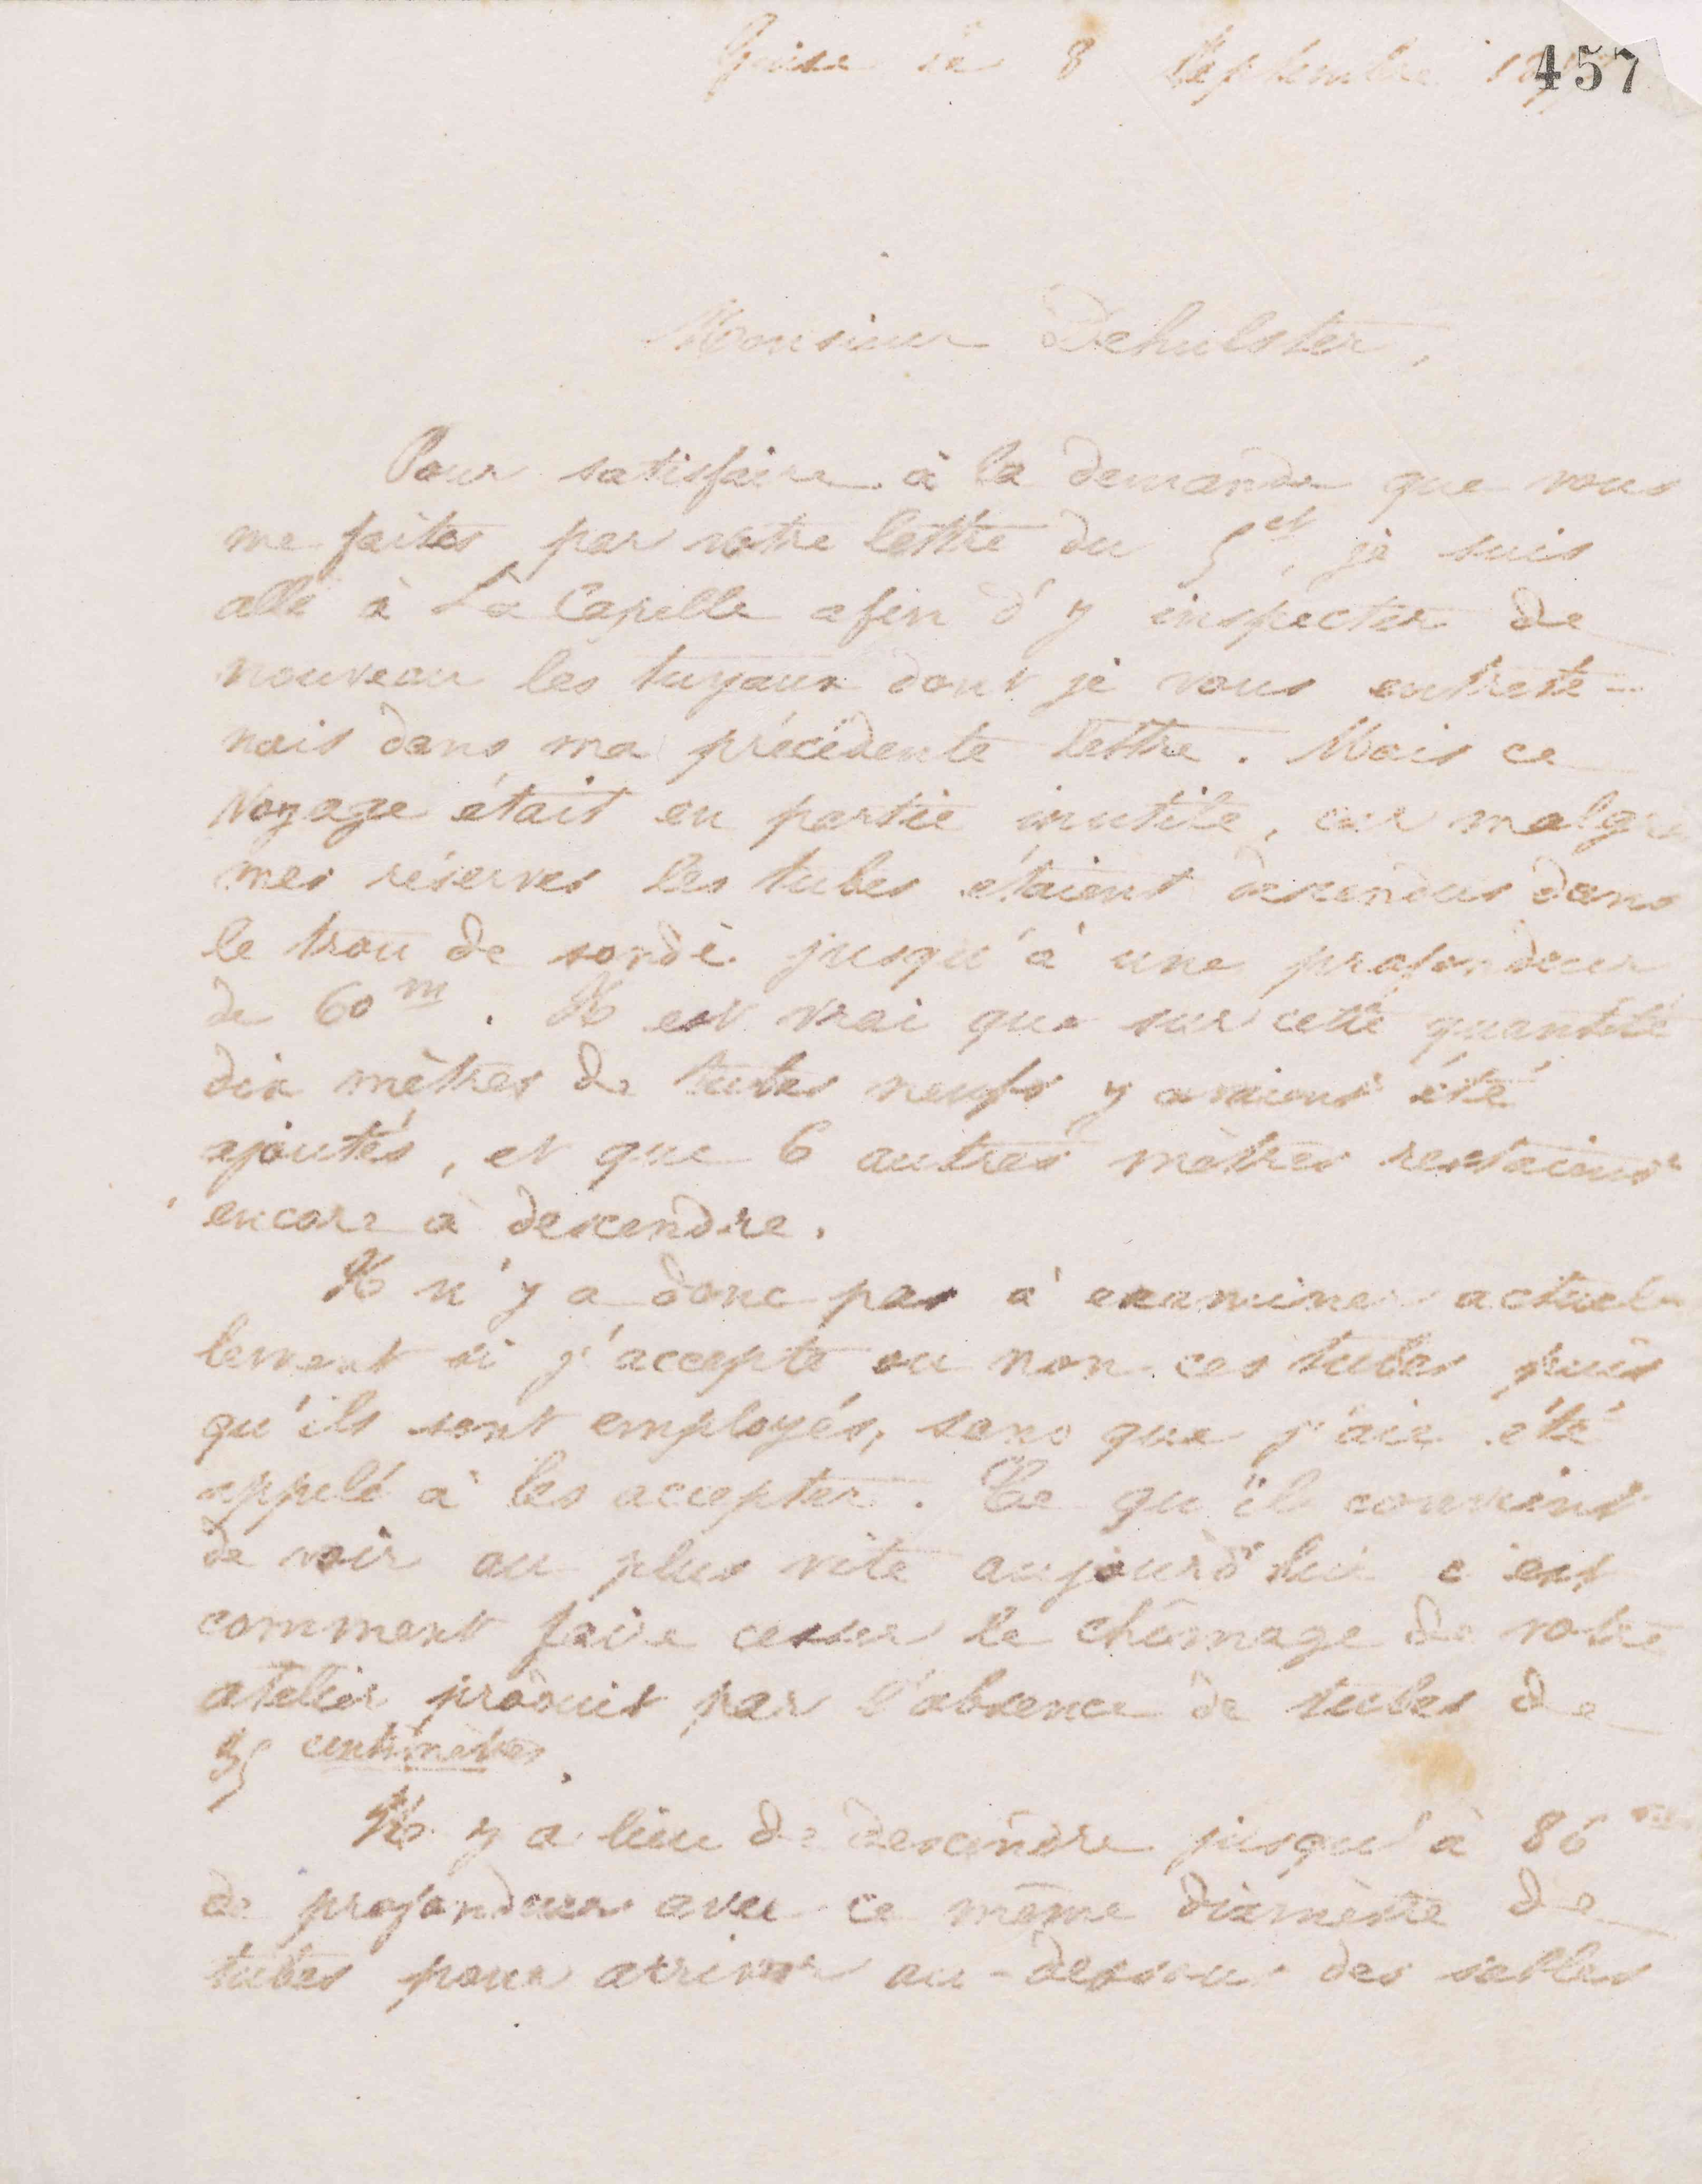 Guise le 8 Septembre 18
457
Monsieur Dehulster,
Pour satisfaire à la demande que vous
me faites par votre lettre du 5 et, je suis
allé à La Capelle afin d'y inspecter de
nouveau les tuyaux dont je vous entrete-
nais dans ma précédente lettre. Mais ce
voyage était en partie inutile, car malgré
mes réserves les tubes étaient descendus dans
le trou de sonde jusqu'à une profondeur
de 60 m. Il est vrai que sur cette quantité
dix mètres de tubes neufs y avaient été
ajoutés, et que 6 autres mètres restaient
encore à descendre.
Il n'y a donc pas à examiner actuel-
lement si j'accepte ou non ces tubes puis
qu'ils sont employés, sans que j'aie été
appelé à les accepter. Ce qu'il convient
de voir au plus vite aujourd'hui c'est
comment faire cesser le chômage de votre
atelier produit par l'absence de tubes de
35 centimètres.
Il y a lieu de descendre jusqu'à 86
de profondeur avec ce même diamètre de
tubes pour arriver au-dessous des sables